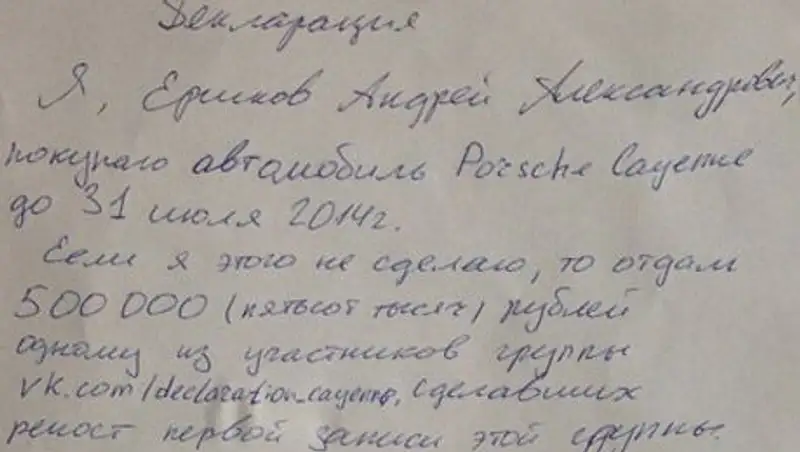 Декларация
Я, Ершков Андрей Александрович,
покупаю автомобиль Porsche Cayenne
до 31 июля 2014г.
Если я этого не сделаю, то отдам
500 000 (пятьсот тысяч) рублей
одному из участников группы
vk.com/declaration_cayenne, сделавших
репост первой записи этой группы.